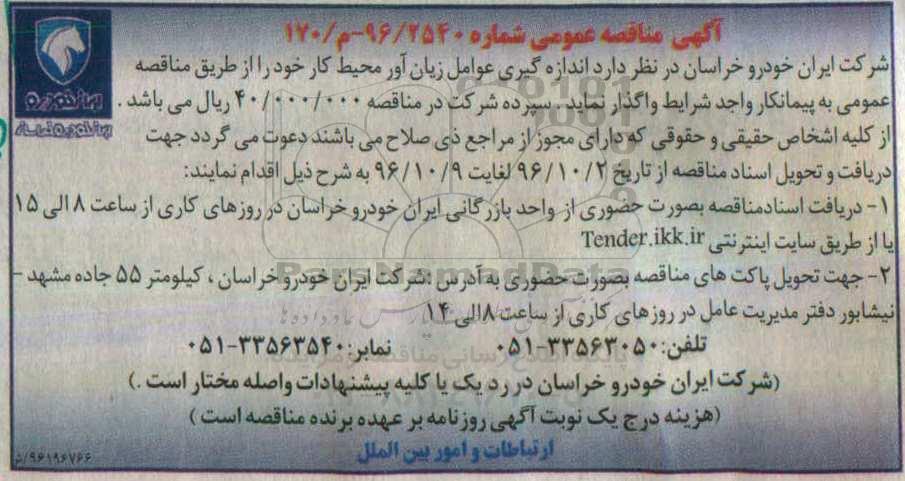 آگهی مناقصه عمومی شماره ۹۶/۲۵۴۰-م/۱۷۰
شرکت ایران خودرو خراسان در نظر دارد اندازه گیری عوامل زیان آور محیط کار خود را از طریق مناقصه
عمومی به پیمانکار واجد شرایط واگذار نماید. سپرده شرکت در مناقصه ۴۰/۰۰۰/۰۰۰ ریال می باشد.
از کلیه اشخاص حقیقی و حقوقی که دارای مجوز از مراجع ذی صلاح می باشند دعوت می گردد جهت
دریافت و تحویل اسناد مناقصه از تاریخ ۹۶/۱۰/۲ لغایت ۹۶/۱۰/۹ به شرح ذیل اقدام نمایند:
۱- دریافت اسناد مناقصه بصورت حضوری از واحد بازرگانی ایران خودرو خراسان در روزهای کاری از ساعت ۸ الی ۱۵
یا از طریق سایت اینترنتی Tender.ikk.ir
۲- جهت تحویل پاکت های مناقصه بصورت حضوری به آدرس :شرکت ایران خودرو خراسان ، کیلومتر ۵۵ جاده مشهد -
نیشابور دفتر مدیریت عامل در روزهای کاری از ساعت ۸ الی ۱۴
تلفن: ۳۳۵۶۳۰۵۰-۰۵۱ نمابر: ۳۳۵۶۳۵۴۰-۰۵۱
(شرکت ایران خودرو خراسان در رد یک یا کلیه پیشنهادات واصله مختار است .)
(هزینه درج یک نوبت آگهی روزنامه بر عهده برنده مناقصه است )
ارتباطات و امور بین الملل
۹۶۱۹۶۷۶۶/ش
ایران خودرو
ایران خودرو خراسان
ParsNamadData